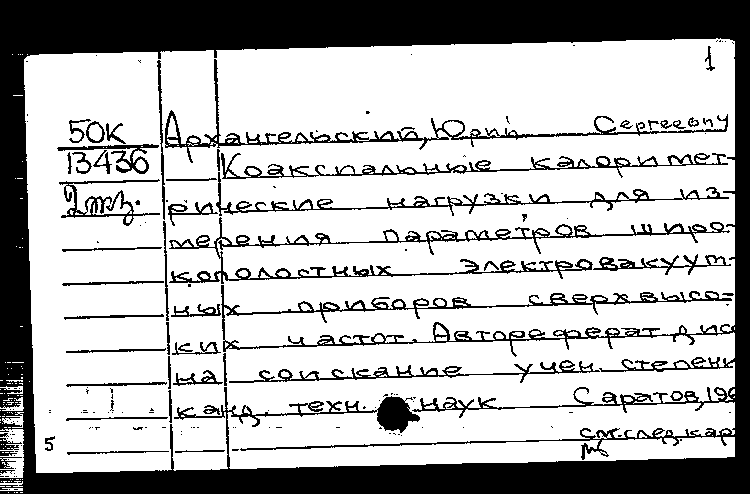 1
50К Архангельский, Юрий Сергеевич
13436 Коаксиальные калоримет-
2экз. рические нагрузки для из-
мерения параметров широ-
кополостных электровакуум-
ных приборов сверхвысо-
ких частот. Автореферат дисс
на соискание учен. степени
канд. техн. наук Саратов, 196
5 см. след. кар